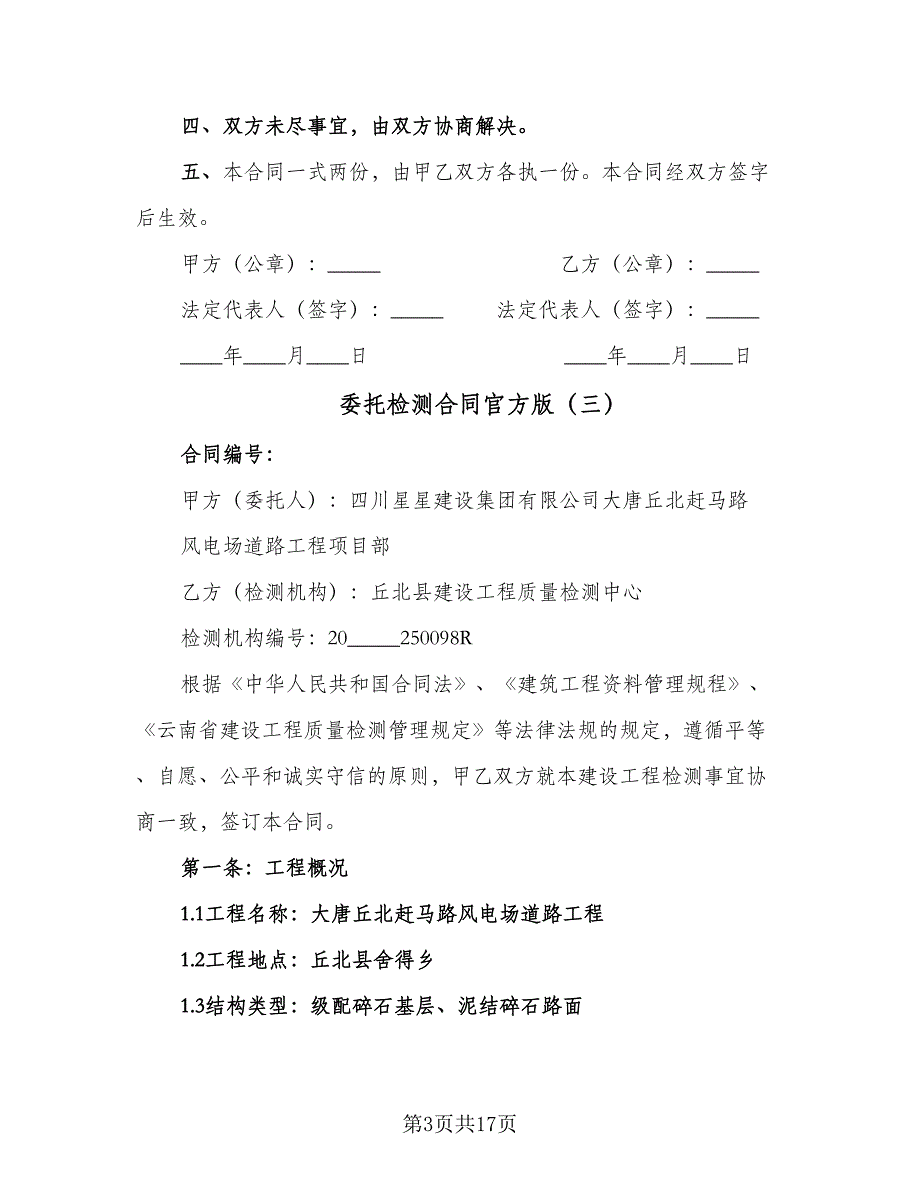 四、双方未尽事宜，由双方协商解决。
五、本合同一式两份，由甲乙双方各执一份。本合同经双方签字
后生效。
甲方（公章）：_____ 乙方（公章）：_____
法定代表人（签字）：_____ 法定代表人（签字）：_____
____年____月____日 ____年____月____日
委托检测合同官方版（三）
合同编号：
甲方（委托人）：四川星星建设集团有限公司大唐丘北赶马路
风电场道路工程项目部
乙方（检测机构）：丘北县建设工程质量检测中心
检测机构编号：20_____250098R
根据《中华人民共和国合同法》、《建筑工程资料管理规程》、
《云南省建设工程质量检测管理规定》等法律法规的规定，遵循平等
、自愿、公平和诚实守信的原则，甲乙双方就本建设工程检测事宜协
商一致，签订本合同。
第一条：工程概况
1.1工程名称：大唐丘北赶马路风电场道路工程
1.2工程地点：丘北县舍得乡
1.3结构类型：级配碎石基层、泥结碎石路面
第3页共17页